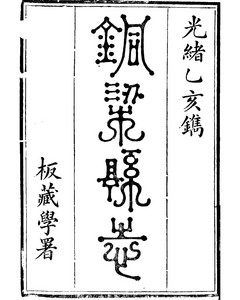 光緒乙亥鐫
銅梁縣志
板藏學署